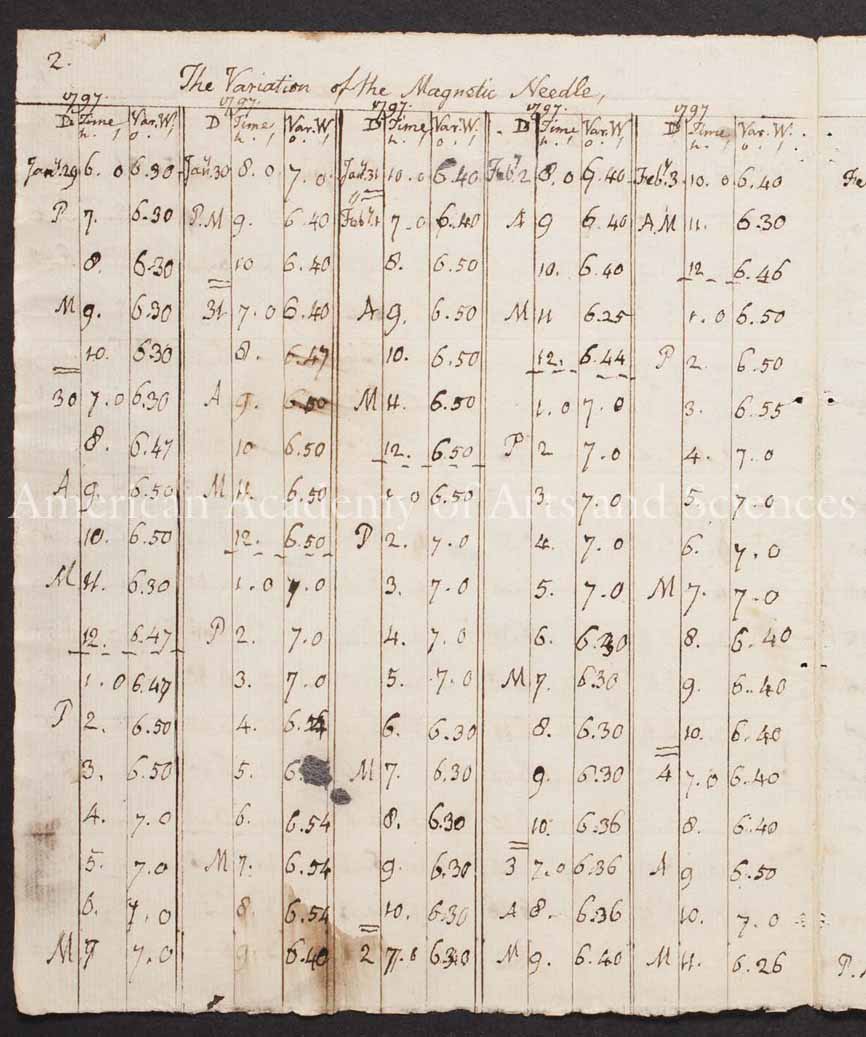 2.
The Variation of the Magnetic Needle,
1797. 1797. 1797. 1797. 1797
D. Time Var.W D Time Var.W D Time Var.W. D Time Var.W D Time Var.W.
h. ' o. ' h. ' o. ' h. ' o. ' h. ' o. ' h. ' o. '
Jany.29 6. 0 6.30 Jany.30 8. 0 7. 0 Jany.31 10. 0 6.40 Feby.2 8. 0 6.40 Feby.3 10. 0 6.40
P 7. 6.30 P.M 9. 6.40 Feby.1 7. 0 6.40 A 9 6.40 A.M 11. 6.30
8. 6.30 10 6.40 8. 6.50 10. 6.40 12 6.46
M 9. 6.30 31 7. 0 6.40 A 9. 6.50 M 11 6.25 1. 0 6.50
10. 6.30 8. 6.47 10. 6.50 12. 6.44 P 2. 6.50
30 7. 0 6.30 A 9. 6.50 M 11. 6.50 1. 0 7. 0 3. 6.55
8. 6.47 10 6.50 12. 6.50 P 2 7. 0 4. 7. 0
A 9. 6.50 M 11. 6.50 1. 0 6.50 3. 7. 0 5. 7. 0
American Academy of Arts and Sciences
10. 6.50 12. 6.50 P 2. 7. 0 4. 7. 0 6. 7. 0
M 11. 6.30 1. 0 7. 0 3. 7. 0 5. 7. 0 M 7. 7. 0
12. 6.47 P 2. 7. 0 4. 7. 0 6. 6.30 8. 6.40
1. 0 6.47 3. 7. 0 5. 7. 0 M 7. 6.30 9. 6.40
P 2. 6.50 4. 6. 6. 6.30 8. 6.30 10. 6.40
3. 6.50 5. M 7. 6.30 9. 6.30 4 7. 0 6.40
4. 7. 0 6. 6.54 8. 6.30 10. 6.36 8. 6.40
5. 7. 0 M 7. 6.54 9. 6.30 3 7. 0 6.36 A 9 6.50
6. 7. 0 8. 6.54 10. 6.30 A 8. 6.36 10. 7. 0
M 7 7. 0 9 6.40 2 7. 0 M 9. 6.40 M 11. 6.26